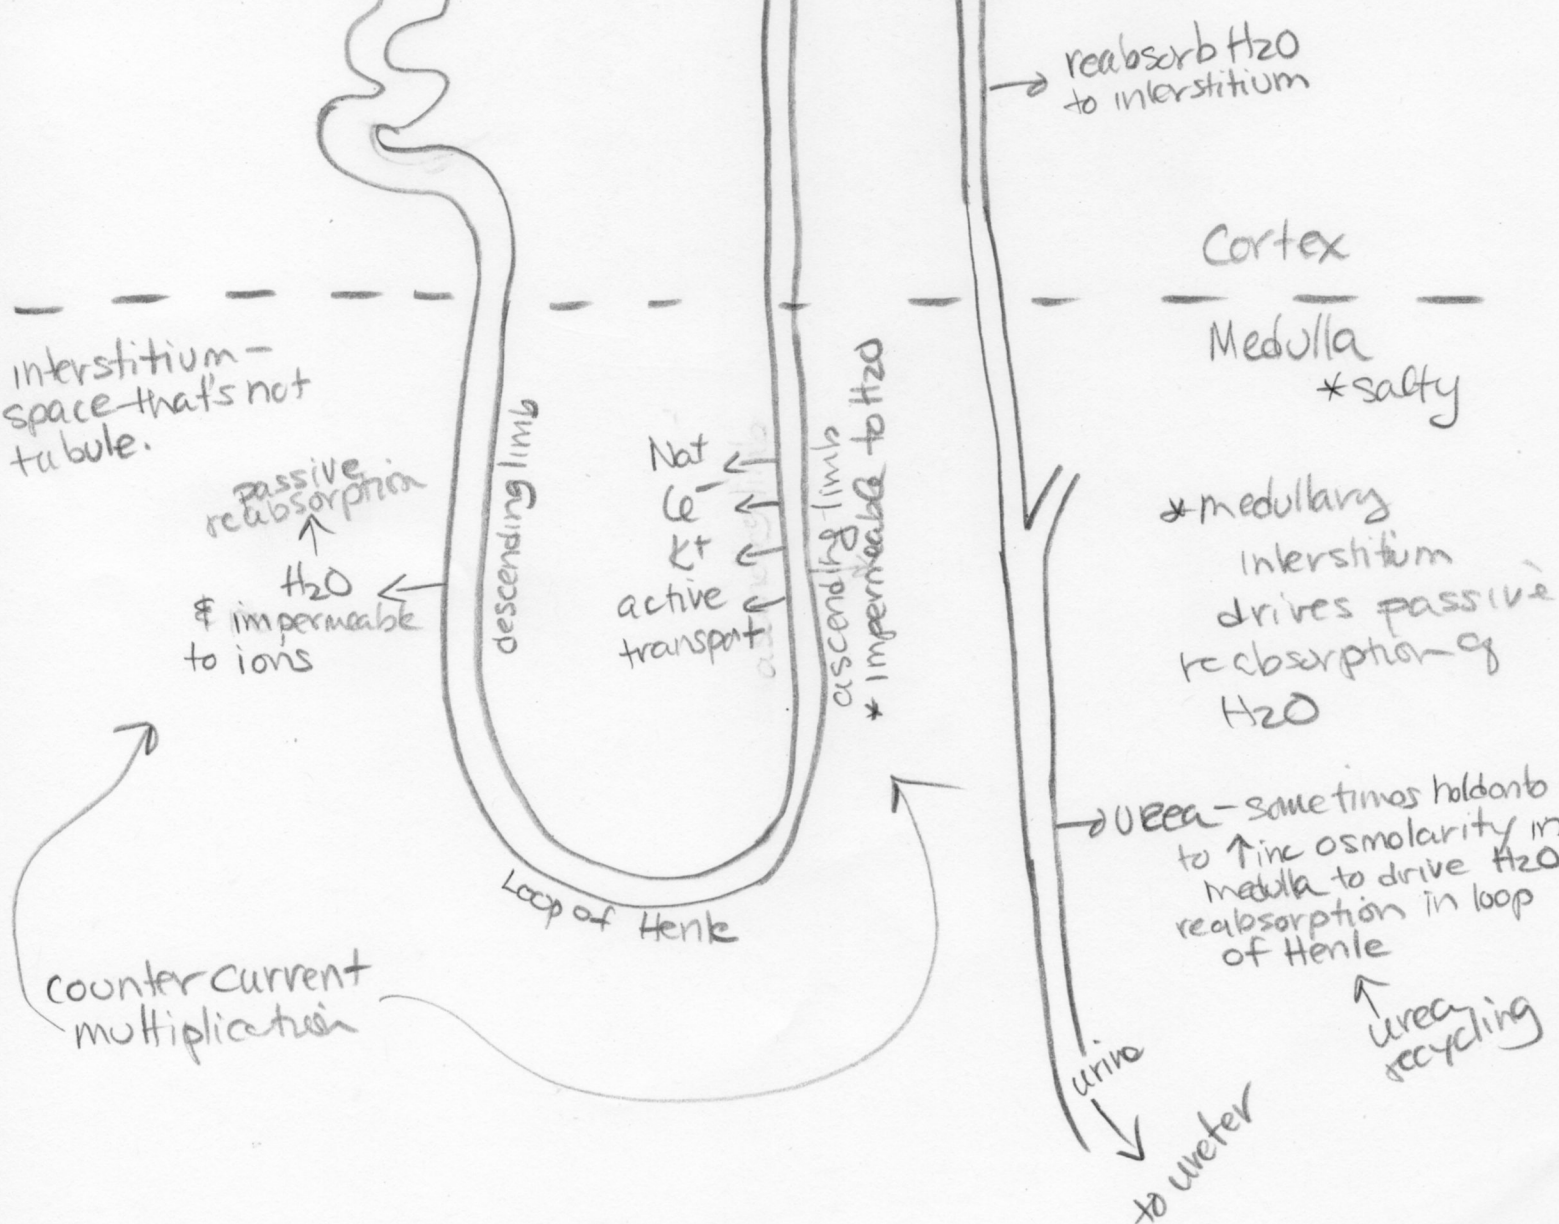 reabsorb H2O
to interstitium
Cortex
Medulla
*salty
interstitium -
space that's not
tubule.
passive
reabsorption
H2O
& impermeable
to ions
descending limb
Na+
Cl-
K+
active
transport
ascending limb
* impermeable to H2O
*medullary
interstitium
drives passive
reabsorption of
H2O
urea - sometimes hold onto
to ↑inc osmolarity in
medulla to drive H2O
reabsorption in loop
of Henle
urea
recycling
Loop of Henle
counter current
multiplication
urine
to ureter